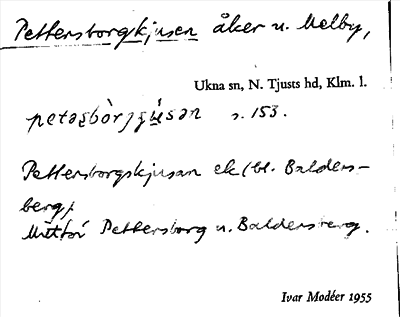 Pettersborgskjusen åker u. Melby,
Ukna sn, N. Tjusts hd, Klm. l.
s. 153.
Pettersborgskjusan ek (bl. Balders-
berg),
Pettersborg u. Baldersberg.
Ivar Modéer 1955